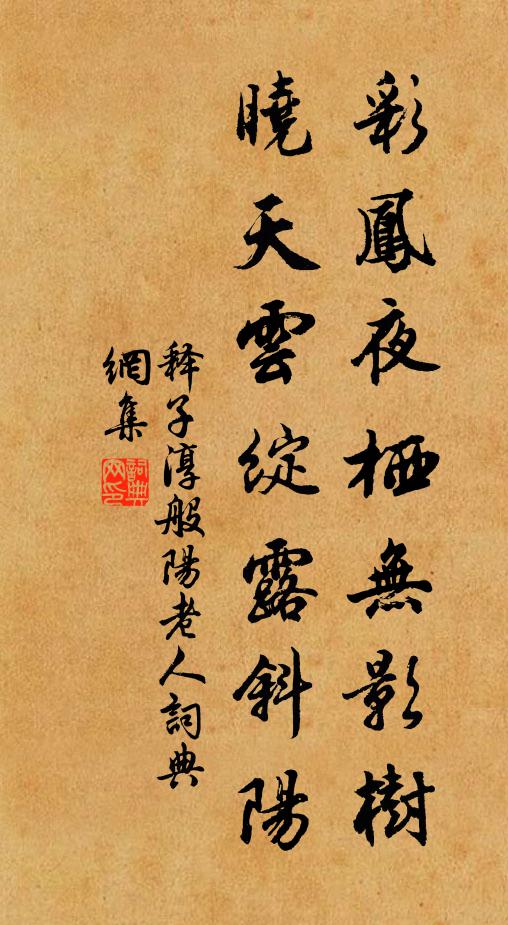 彩鳳夜栖無影樹
曉天雲綻露斜陽
释子淳般陽老人詞典
網集
詞典
网印